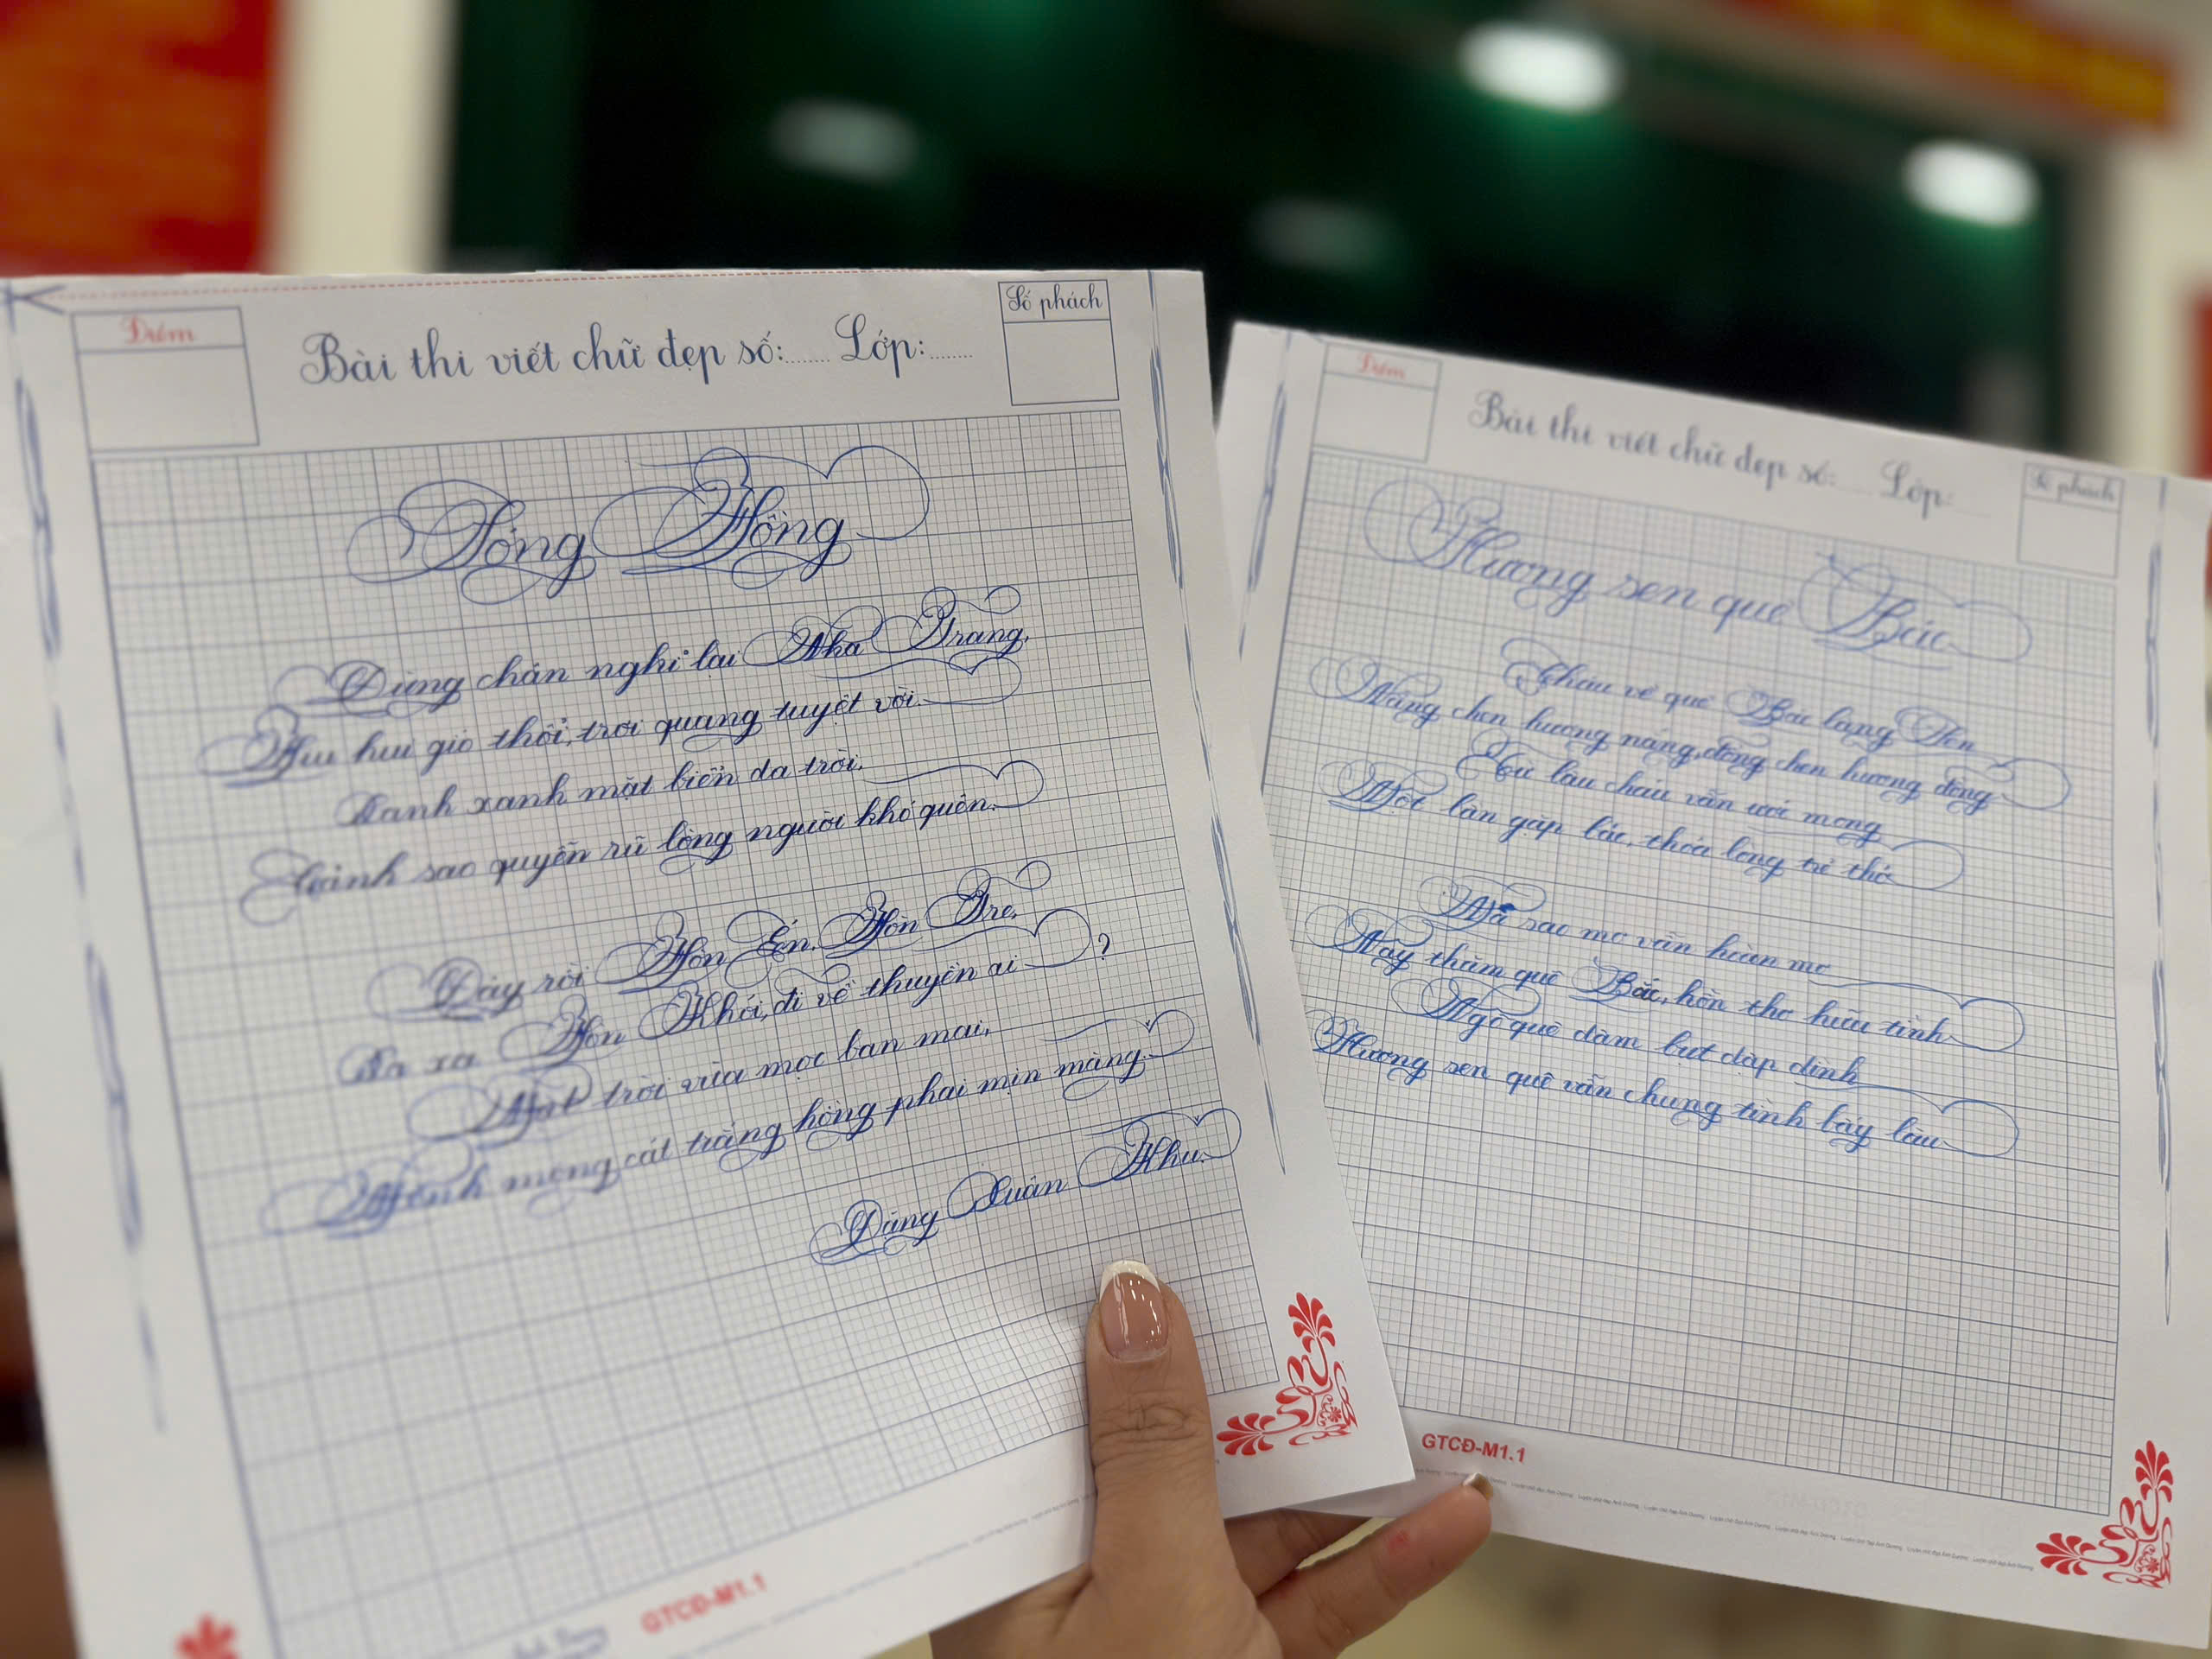 Điểm
Bài thi viết chữ đẹp số:....... Lớp:.......
Số phách
Sóng Hồng
Dừng chân nghỉ lại Nha Trang,
Hiu hiu gió thổi, trời quang tuyệt vời.
Xanh xanh mặt biển da trời,
Cảnh sao quyến rũ lòng người khó quên.
Đây rồi Hòn Én, Hòn Tre,
Xa xa Hòn Khói, đi về thuyền ai ?
Mặt trời vừa mọc ban mai,
Mênh mông cát trắng hồng phai mịn màng.
Đặng Xuân Khu.
GTCĐ-M1.1
Điểm
Bài thi viết chữ đẹp số:..... Lớp:.....
Số phách
Hương sen quê Bác
Cháu về quê Bác làng Sen
Nắng chen hương nắng, đồng chen hương đồng
Từ lâu cháu vẫn ước mong
Một lần gặp bác, thỏa lòng trẻ thơ
Mà sao mơ vẫn hoàn mơ
Nay thăm quê Bác, hồn thơ hữu tình
Ngõ quê dâm bụt dập dình
Hương sen quê vẫn chung tình bấy lâu
GTCĐ-M1.1